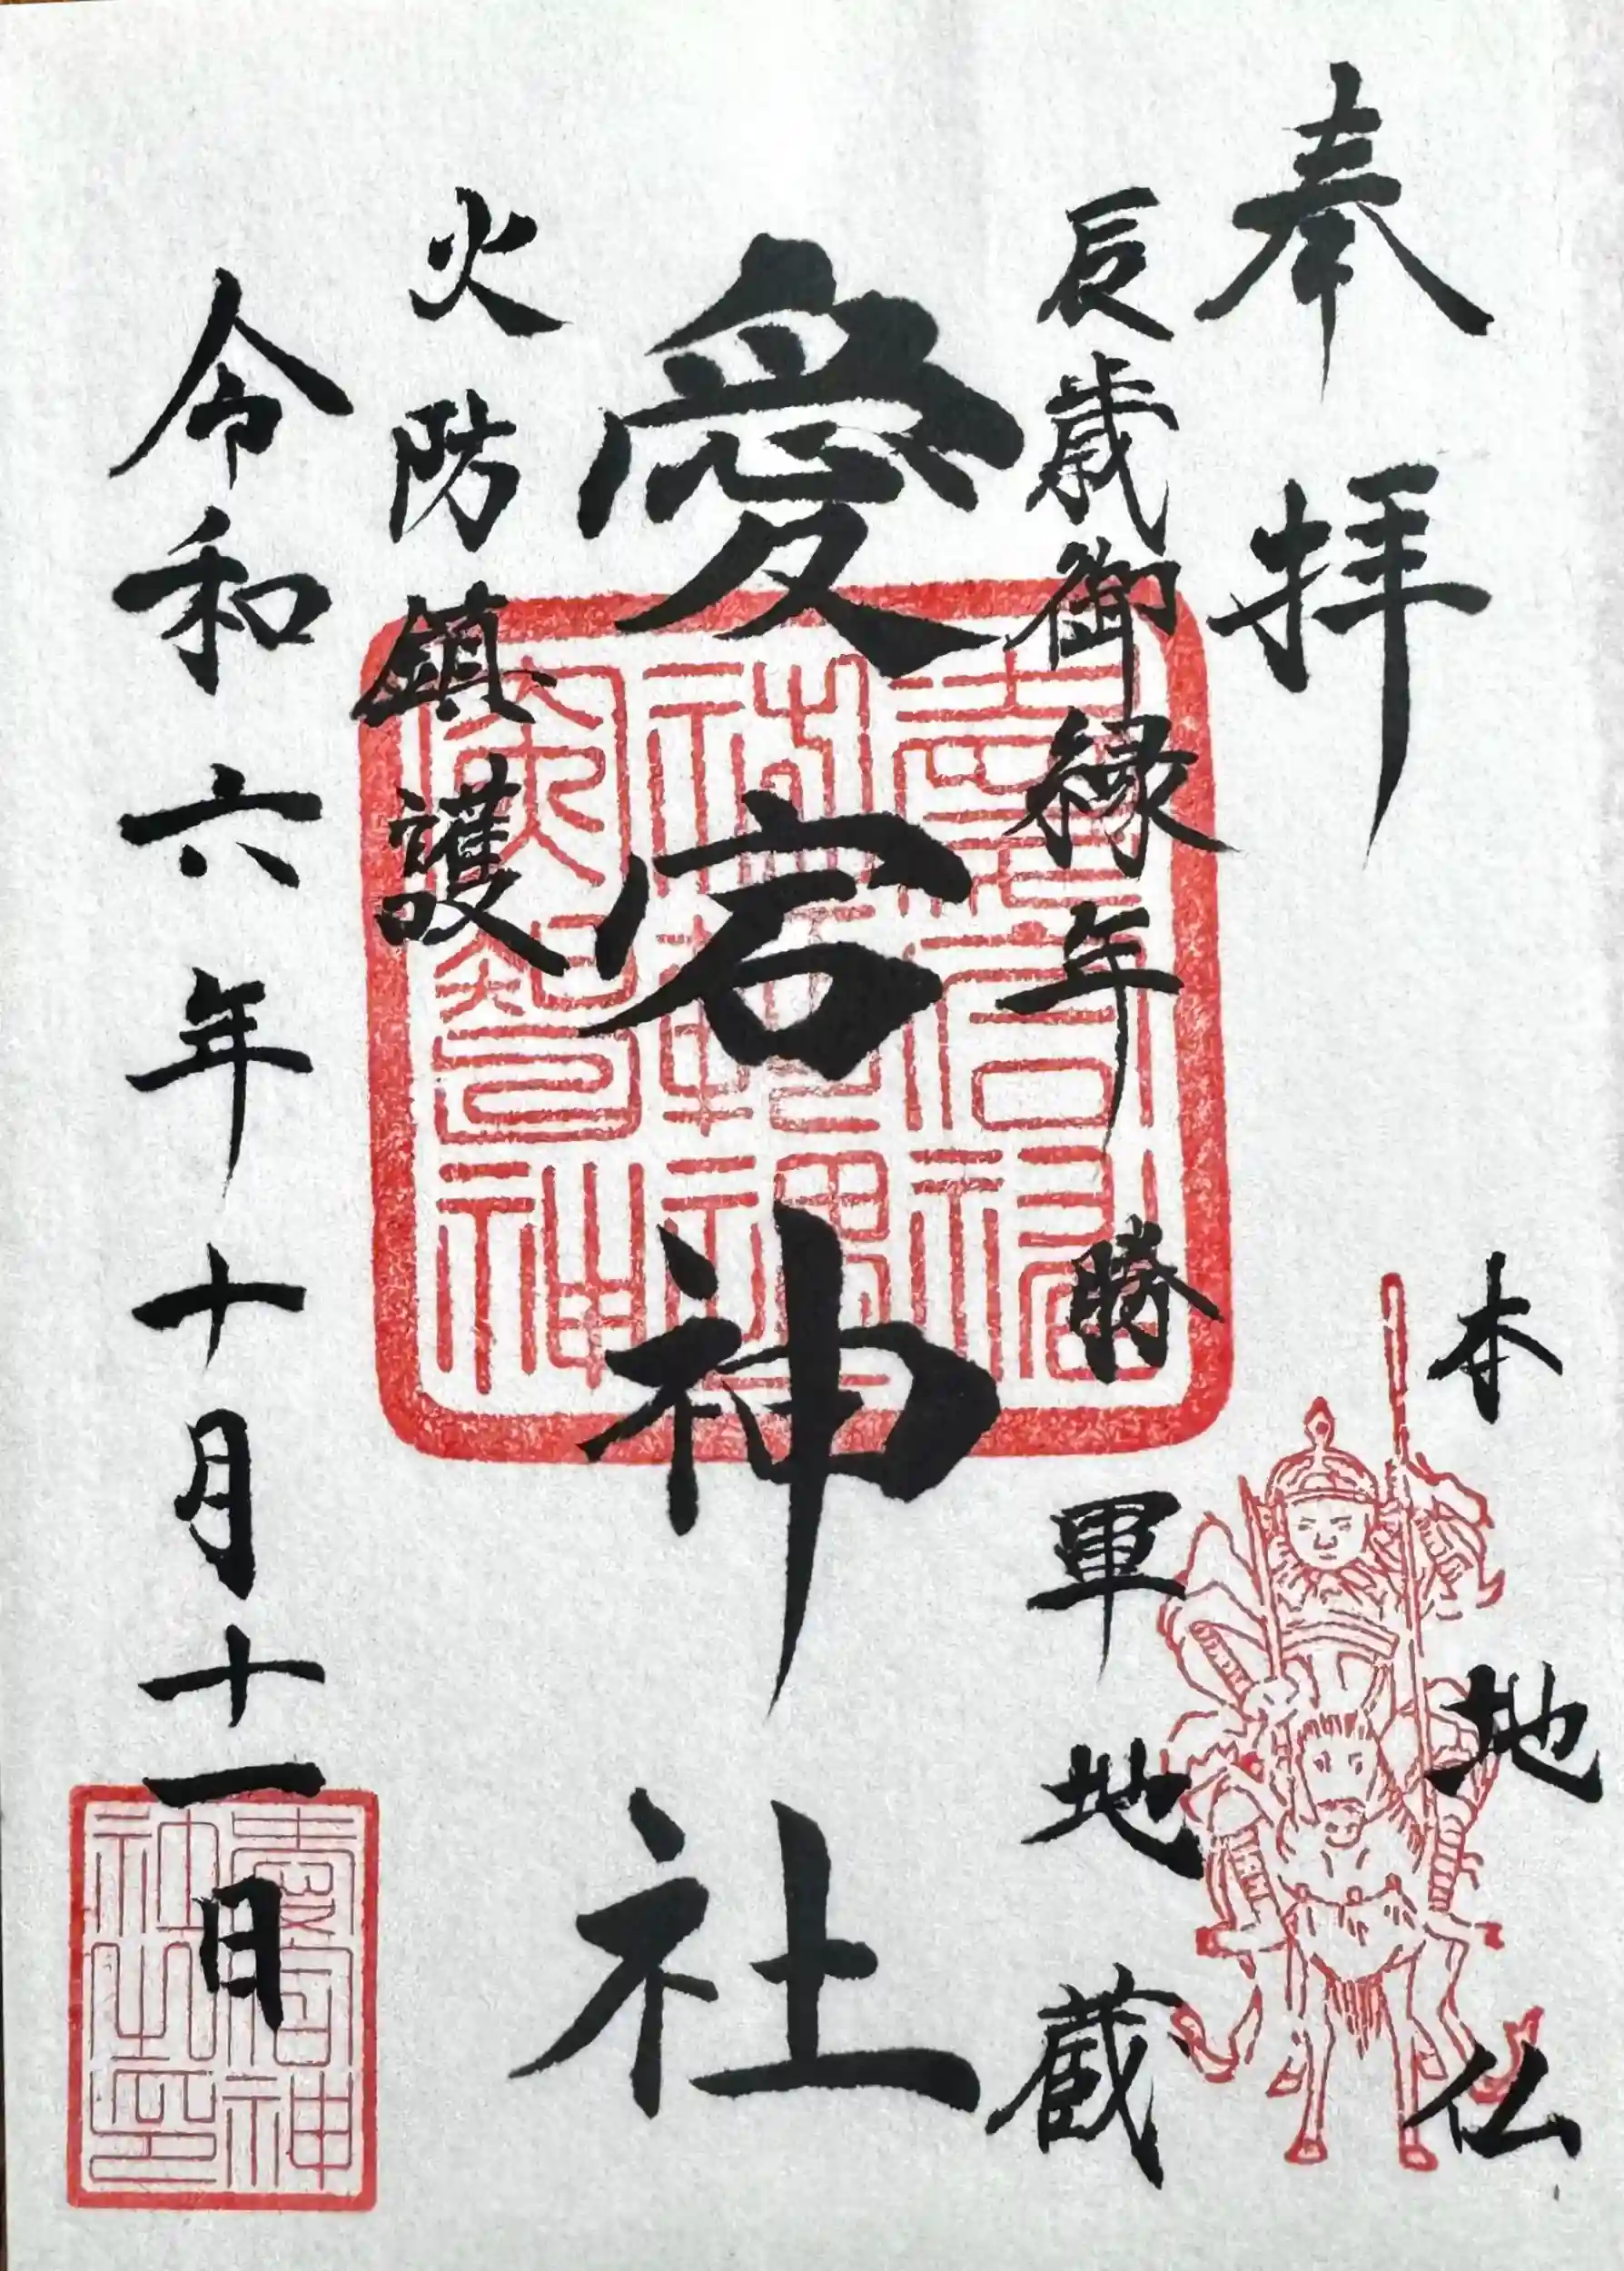 奉拝
本地仏
辰歳御縁年
勝軍地蔵
愛宕神社
火防鎮護
令和六年十月十一日
愛宕神
社之印